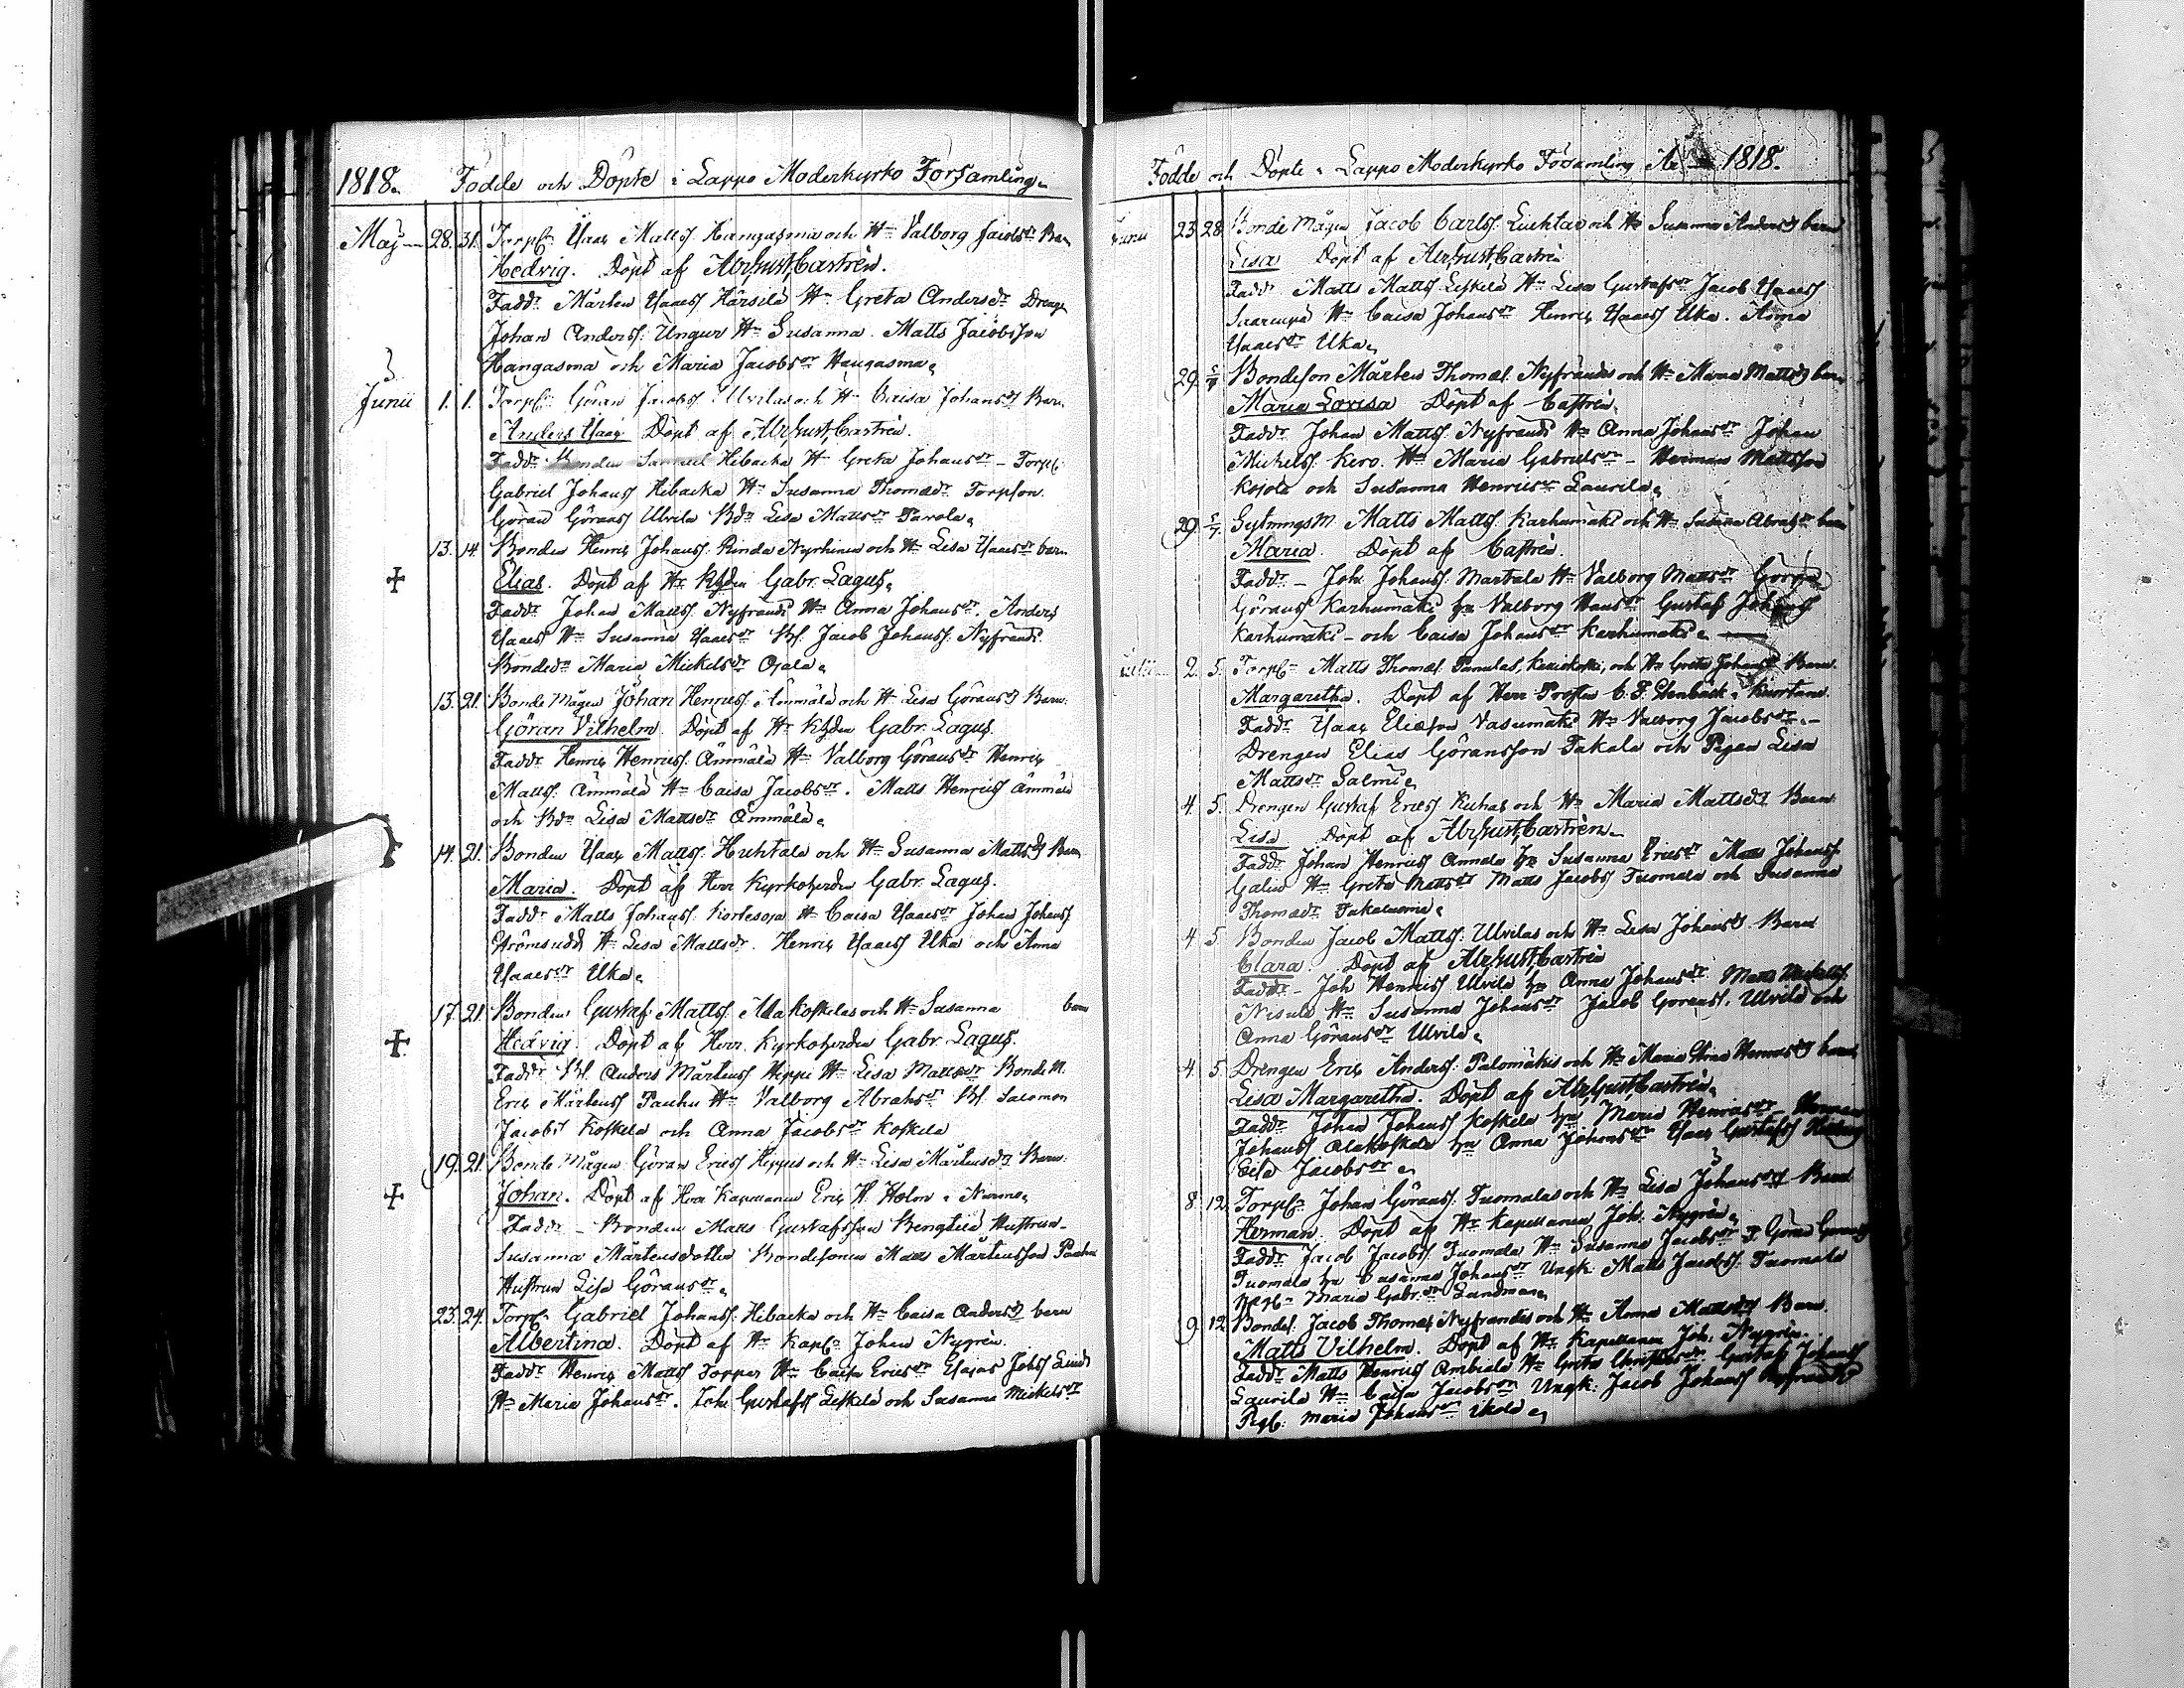 1818. Födde och Döpte i Lappo Moderkyrko Församling.
Maj 28. 31. Torp. Isaac Matts. Kangasmia och H. Valborg Jacobs dr Barn
Hedvig. Döpt af Castrèn.
Fadd. Mårten Isaacs Härsilä H. Greta Anders dr Dreng
Johan Anders. Ungur H. Susanna. Matts Jacobsson
Kangasma och Maria Jacobs dr Kangasma.
Junii 1. 1. Torp. Göran Jacobs. Ulvilas och H. Caisa Johans dr Barn
Anders Isaac Döpt af Castrèn.
Fadd. Bonden Samuel Hibacka H. Greta Johans dr - Torp.
Gabriel Johans Hibacka H. Susanna Thomæ dr Torpson.
Göran Görans Ulvila Lisa Matts dr Parola.
13. 14. Bonden Henric Johans. Rinda Nyrhinen och H. Lisa Isaacs dr barn
Elias. Döpt af Hr Gabr. Lagus.
Fadd. Johan Matts. Nyfrands H. Anna Johans dr. Anders
Isaacs H. Susanna Isaacs dr Jacob Johans. Nyfrands
Maria Mickels dr Ojala.
13. 21. Bonde Mågen Johan Henrics. Ämmälä och H. Lisa Görans dr Barn.
Göran Vilhelm. Döpt af Hr Gabr. Lagus.
Fadd. Henric Henrics. Ämmälä H. Valborg Görans dr Henric
Matts. Ämmälä H. Caisa Jacobs dr. Matts Henrics Ämmälä
och Lisa Matts dr Ämmälä.
14. 21. Bonden Isaac Matts. Huhtala och H. Susanna Matts dr Barn
Maria. Döpt af Herr Kyrkoherden Gabr. Lagus.
Fadd. Matts Johans. Kortesoja H. Caisa Isaacs dr Johan Johans
Strömsudd H. Lisa Matts dr. Henric Isaacs Uka och Anna
Isaacs dr Uka.
17. 21. Bonden Gustaf Matts. Alakoskelas och H. Susanna barn
Hedvig. Döpt af Herr Kyrkoherden Gabr. Lagus.
Fadd. Anders Mårtens Heppi H. Lisa Matts dr Bonde M.
Eric Mårtens Pauhu H. Valborg Abrahs dr Salomon
Jacobs Koskela och Anna Jacobs dr Koskela
19. 21. Bonde Mågen Göran Erics Heppis och H. Lisa Mårtens dr Barn.
Johan. Döpt af Herr Kapellanen Eric H. Holm i Nurmo.
Fadd. - Bonden Matts Gustafsson Hustrun
Susanna Mårtensdotter Bondesonen Matts Mårtensson Pauhu
Hustrun Lisa Görans dr.
23. 24. Torp. Gabriel Johans. Hibacka och H. Caisa Anders dr barn
Albertina. Döpt af Hr Kapl. Johan Nygrèn.
Fadd. Henric Matts Topper H. Caisa Erics dr Esaias Johs Lind
H. Maria Johans dr. Joh. Gustafs Leskelä och Susanna Mickels dr
Födde och Döpte i Lappo Moderkyrko Församling År 1818.
Junii 23 28 Bonde Mågen Jacob Carls. Luchtas och H. Susanna Anders dr barn
Lisa Döpt af Castrèn
Fadd. Matts Matts Leskelä H. Lisa Gustafs dr Jacob Isaacs
Saarenpä H. Caisa Johans dr Henric Isaacs Uka. Anna
Isaacs dr Uka.
29. 5/7 Bondeson Mårten Thomæ. Nyfrands och H. Maria Matts dr barn
Maria Lovisa Döpt af Castrèn.
Fadd. Johan Matts. Nyfrand H. Anna Johans dr Johan
Mickels. Kero. H. Maria Gabriels dr - Herman Mattsson
Kojola och Susanna Henrics dr Laurila.
29. 5/7. Matts Matts. Karhumäki och H. Susanna Abrahs dr barn
Maria. Döpt af Castrèn.
Fadd. - Joh. Johans. Martala H. Valborg Matts dr
Görans Karhumäki Valborg Hans dr Gustaf Johans
Karhumäki - och Caisa Johans dr Karhumäki.
Julii 2. 5. Torp. Matts Thomæ. Panulas, och H. Greta Johans dr Barn
Margaretha. Döpt af Herr Prosten C. F. Stenbäck i Kuortane
Fadd. Isaac Eliæson Vasumäki H. Valborg Jacobs dr. -
Drengen Elias Göransson Takala och Pigan Lisa
Matts dr Salmi.
4. 5. Drengen Gustaf Erics Kuhas och H. Maria Matts dr Barn
Lisa Döpt af Castrèn.
Fadd. Johan Henrics Annala Susanna Erics dr Matts Johans
H. Greta Matts dr Matts Jacobs Tuomala och Susanna
Thomæ dr Takaluoma.
4. 5. Bonden Jacob Matts. Ulvilas och H. Lisa Johans dr Barn
Clara. Döpt af Castrèn
Fadd. - Joh Henrics Ulvila Anna Johans dr Matts
Nisula H. Susanna Johans dr Jacob Görans. Ulvila och
Anna Görans dr Ulvila.
4. 5 Drengen Eric Anders. Palomäkis och H. Maria Henrics dr barn
Lisa Margaretha. Döpt af Castrèn.
Fadd. Johan Johans Koskela Maria Henrics dr Herman
Johans Alakoskela Anna Johans dr Isaac Gustafs
Jacobs dr.
8 12. Torp. Johan Görans. Tuomalas och H. Lisa Johans dr Barn
Herman. Döpt af Hr Kapellanen Joh. Nygrèn.
Fadd. Jacob Jacobs. Tuomala H. Susanna Jacobs dr T. Göran
Tuomala Susanna Johans dr Ungk. Matts Jacobs. Tuomala
Maria Gabr. dr Sandman.
9 12 Bondes. Jacob Thomæ. Nyfrandes och H. Anna Matts dr Barn.
Matts Vilhelm. Döpt af Hr Kapellanen Joh. Nygrèn.
Fadd. Matts Henrics Ambiala H. Greta Gustaf Johans
Laurila H. Caisa Jacobs dr Ungk. Jacob Johans Nyfrand
Maria Johans dr Ukola.